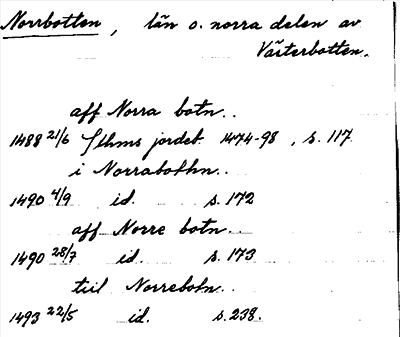 Norrbotten, län o. norra delen av
Västerbotten.
aff Norra botn..
1488 21/6 Sthms jordeb. 1474-98, s. 117
i Norrabothn..
1490 4/9 id. s. 172
aff Norre botn..
1490 28/7 id. s. 173
tiil Norrebotn..
1493 22/5 id. s. 238.